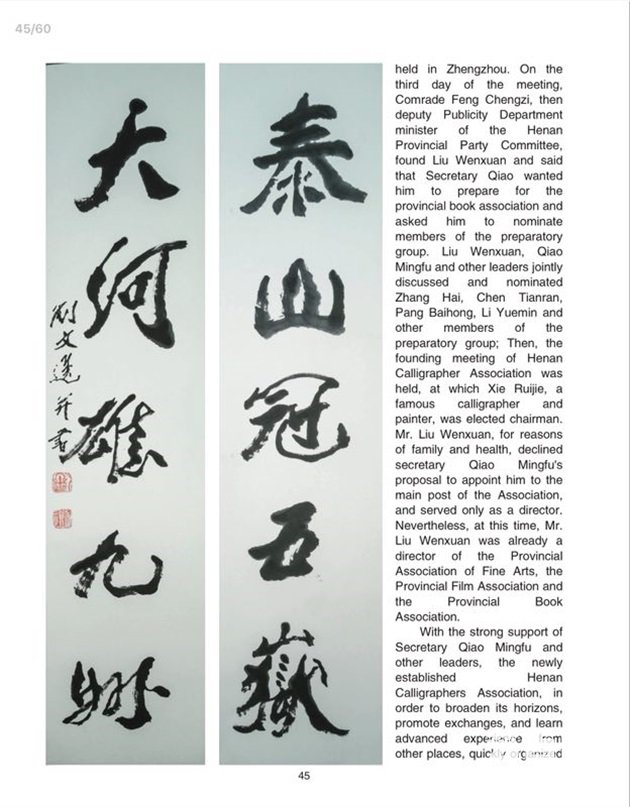 45/60
泰山冠五嶽
大河雄九州
held in Zhengzhou. On the
third day of the meeting,
Comrade Feng Chengzi, then
deputy Publicity Department
minister of the Henan
Provincial Party Committee,
found Liu Wenxuan and said
that Secretary Qiao wanted
him to prepare for the
provincial book association and
asked him to nominate
members of the preparatory
group. Liu Wenxuan, Qiao
Mingfu and other leaders jointly
discussed and nominated
Zhang Hai, Chen Tianran,
Pang Baihong, Li Yuemin and
other members of the
preparatory group; Then, the
founding meeting of Henan
Calligrapher Association was
held, at which Xie Ruijie, a
famous calligrapher and
painter, was elected chairman.
Mr. Liu Wenxuan, for reasons
of family and health, declined
secretary Qiao Mingfu's
proposal to appoint him to the
main post of the Association,
and served only as a director.
Nevertheless, at this time, Mr.
Liu Wenxuan was already a
director of the Provincial
Association of Fine Arts, the
Provincial Film Association and
the Provincial Book
Association.
With the strong support of
Secretary Qiao Mingfu and
other leaders, the newly
established Henan
Calligraphers Association, in
order to broaden its horizons,
promote exchanges, and learn
advanced experience from
other places, quickly organized
劉文選并書
45